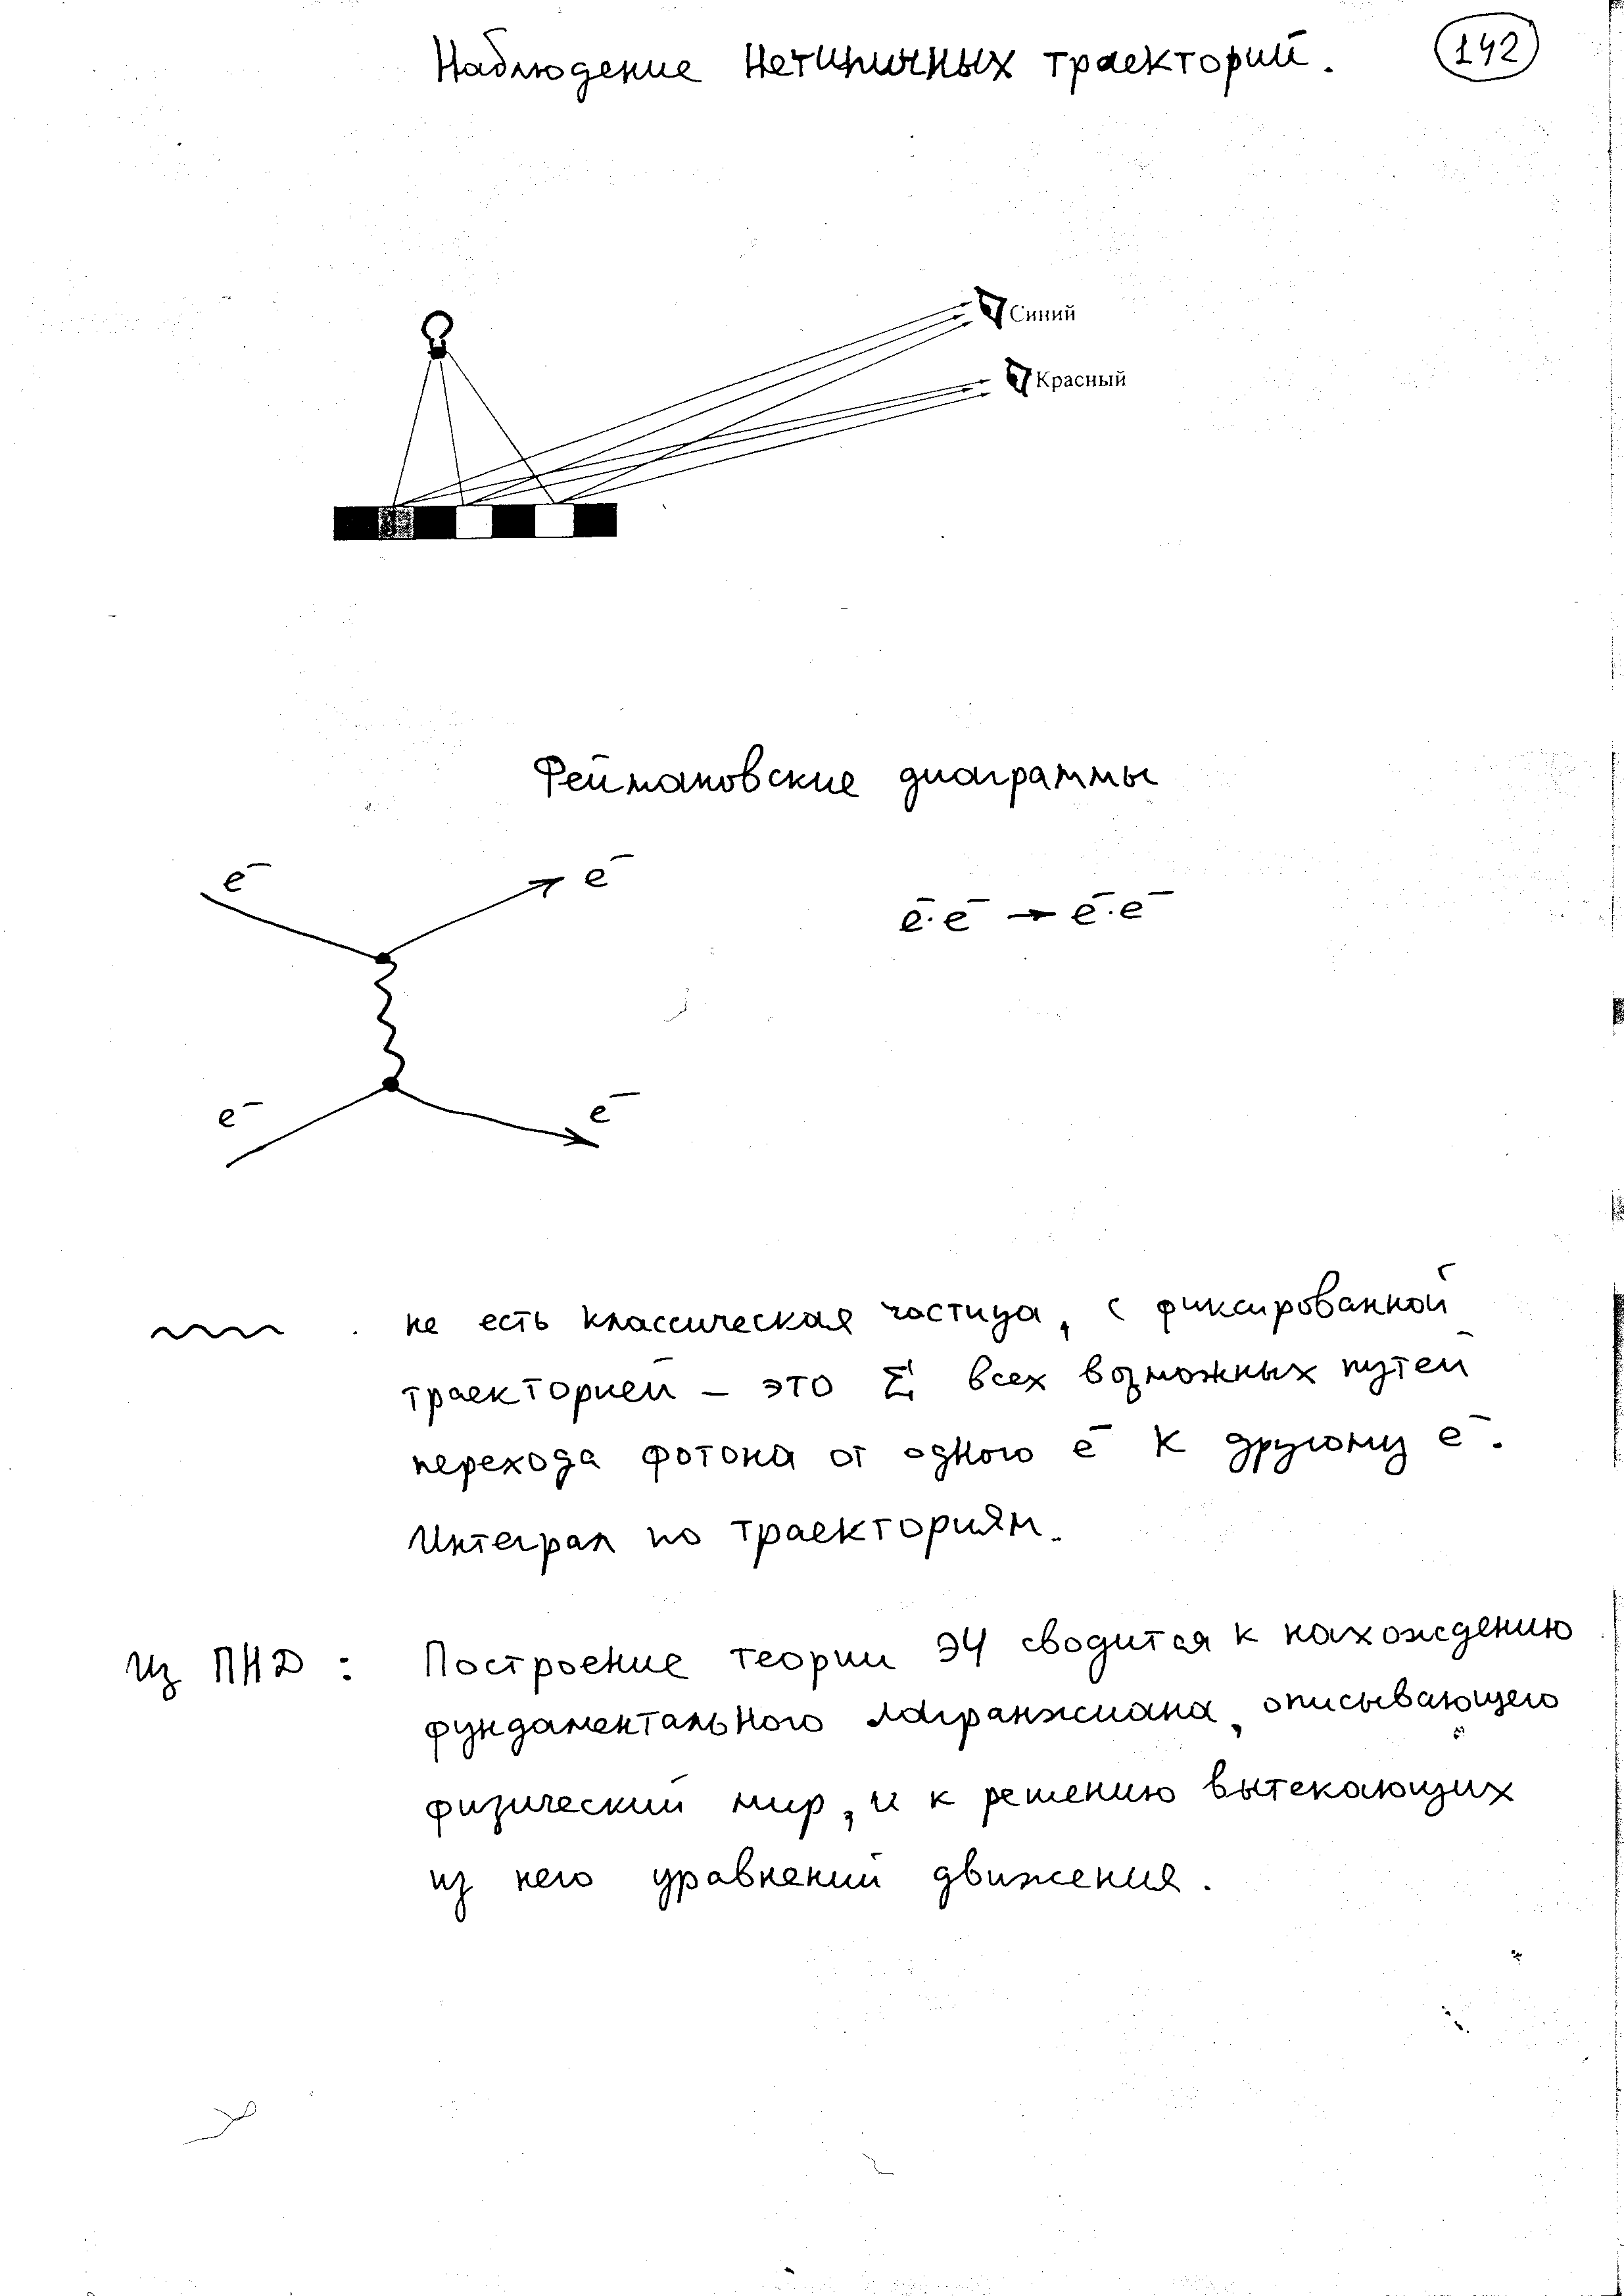 Наблюдение нетипичных траекторий.
142
Синий
Красный
Феймановские диаграммы
e⁻ e⁻
e⁻·e⁻ → e⁻·e⁻
e⁻ e⁻
не есть классическая частица, с фиксированной
траекторией – это Σ всех возможных путей
перехода фотона от одного e⁻ к другому e⁻.
Интеграл по траекториям.
Из ПНД: Построение теории ЭЧ сводится к нахождению
фундаментального лагранжиана, описывающего
физический мир, и к решению вытекающих
из него уравнений движения.